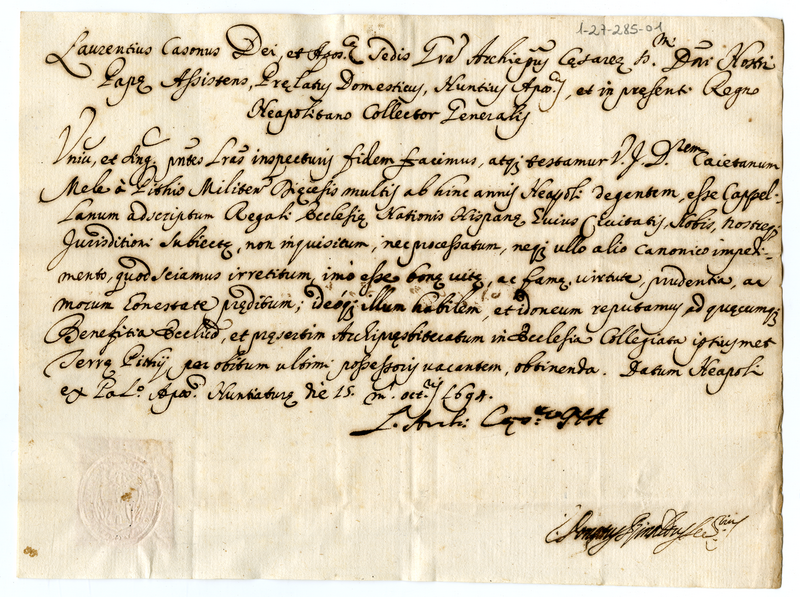 1-27-285-01
Laurentius Casonus Dei, et Apo.cę Sedis Gra Archiepūs Cęsareę S.mi Dñi Nostri
Papę Assistens, Pręlatus Domesticus, Nuntius Apo.cus, et in presenti Regno
Neapolitano Collector Generalis
Vniu, et sing. pntes Lras inspecturis fidem facimus, atq; testamur V. J. D.rem Caietanum
Mele à Pithio Militen. Diecesis multis ab hinc annis Neapoli degentem, esse Cappel-
Lanum adscriptum Regali Ecclesię Nationis Hispanę huius Civitatis, Nobis, nostręq;
Jurisditioni Subiectę, non inquisitum, nec processatum, neq; ullo alio Canonico impedi-
mento, quod sciamus irretitum, imò esse bonę vitę, ac famę, virtute, prudentia, ac
morum honestate pręditum; ideoq; illum habilem, et idoneum reputamus ad quęcumq;
Benefitia Ecclica, et pręsertim Archipręsbiteratum in Ecclesia Collegiata ipsiusmet
Terrę Pithij per obitum ultimi possessoris vacantem, obtinenda. Datum Neapoli
ex Pal.o Apo.co Nuntiaturę die 15. m. oct.ris 1694.
L. Arch.